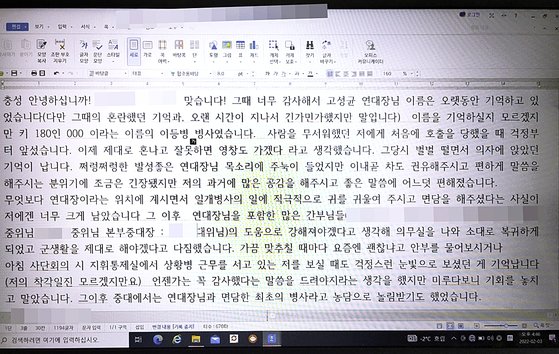 편집 보기 입력 서식
충성 안녕하십니까! 맞습니다! 그때 너무 감사해서 고성균 연대장님 이름은 오랫동안 기억하고 있
었습니다(다만 그때의 혼란했던 기억과, 오랜 시간이 지나서 긴가민가했지만 말입니다) 이름을 기억하실지 모르겠지
만 키 180인 000 이라는 이름의 이등병 병사였습니다. 사람을 무서워했던 저에게 처음에 호출을 당했을 때 걱정부
터 앞섰습니다. 이제 제대로 혼나고 잘못하면 영창도 가겠다 라고 생각했습니다. 그당시 벌벌 떨면서 의자에 앉았던
기억이 납니다. 쩌렁쩌렁한 발성좋은 연대장님 목소리에 주눅이 들었지만 이내곧 차도 권유해주시고 편하게 말씀을
해주시는 분위기에 조금은 긴장됐지만 저의 과거에 많은 공감을 해주시고 좋은 말씀에 어느덧 편해졌습니다.
무엇보다 연대장이라는 위치에 계시면서 일개병사의 일에 직극적으로 귀를 귀울여 주시고 면담을 해주셨다는 사실이
저에겐 너무 크게 남았습니다 그 이후 연대장님을 포함한 많은 간부님들
중위님 중위님 본부중대장 대위님)의 도움으로 강해져야겠다고 생각해 의무실을 나와 소대로 복귀하게
되었고 군생활을 제대로 해야겠다고 다짐했습니다. 가끔 맞추칠 때마다 요즘엔 괜찮냐고 안부를 물어보시거나
아침 사단회의 시 지휘통제실에서 상황병 근무를 서고 있는 저를 보실 때도 걱정스런 눈빛으로 보셨던 게 기억납니다
(저의 착각일진 모르겠지만요) 언젠가는 꼭 감사했다는 말씀을 드려야지라는 생각을 했지만 미루다보니 기회를 놓치
고 말았습니다. 그이후 중대에서는 연대장님과 면담한 최초의 병사라고 농담으로 놀림받기도 했었습니다.
1단 3줄 30칸 1194글자 문자 입력 1/1 구역 삽입 변경 내용 [기록 중지]
검색하려면 여기에 입력하십시오 -2°C 흐림 오후 4:46
2022-02-03